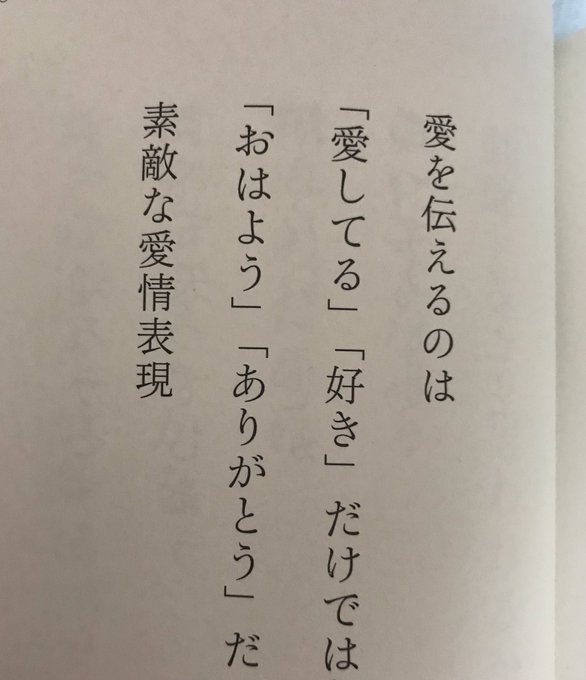 愛を伝えるのは
「愛してる」「好き」だけでは
「おはよう」「ありがとう」だ
素敵な愛情表現